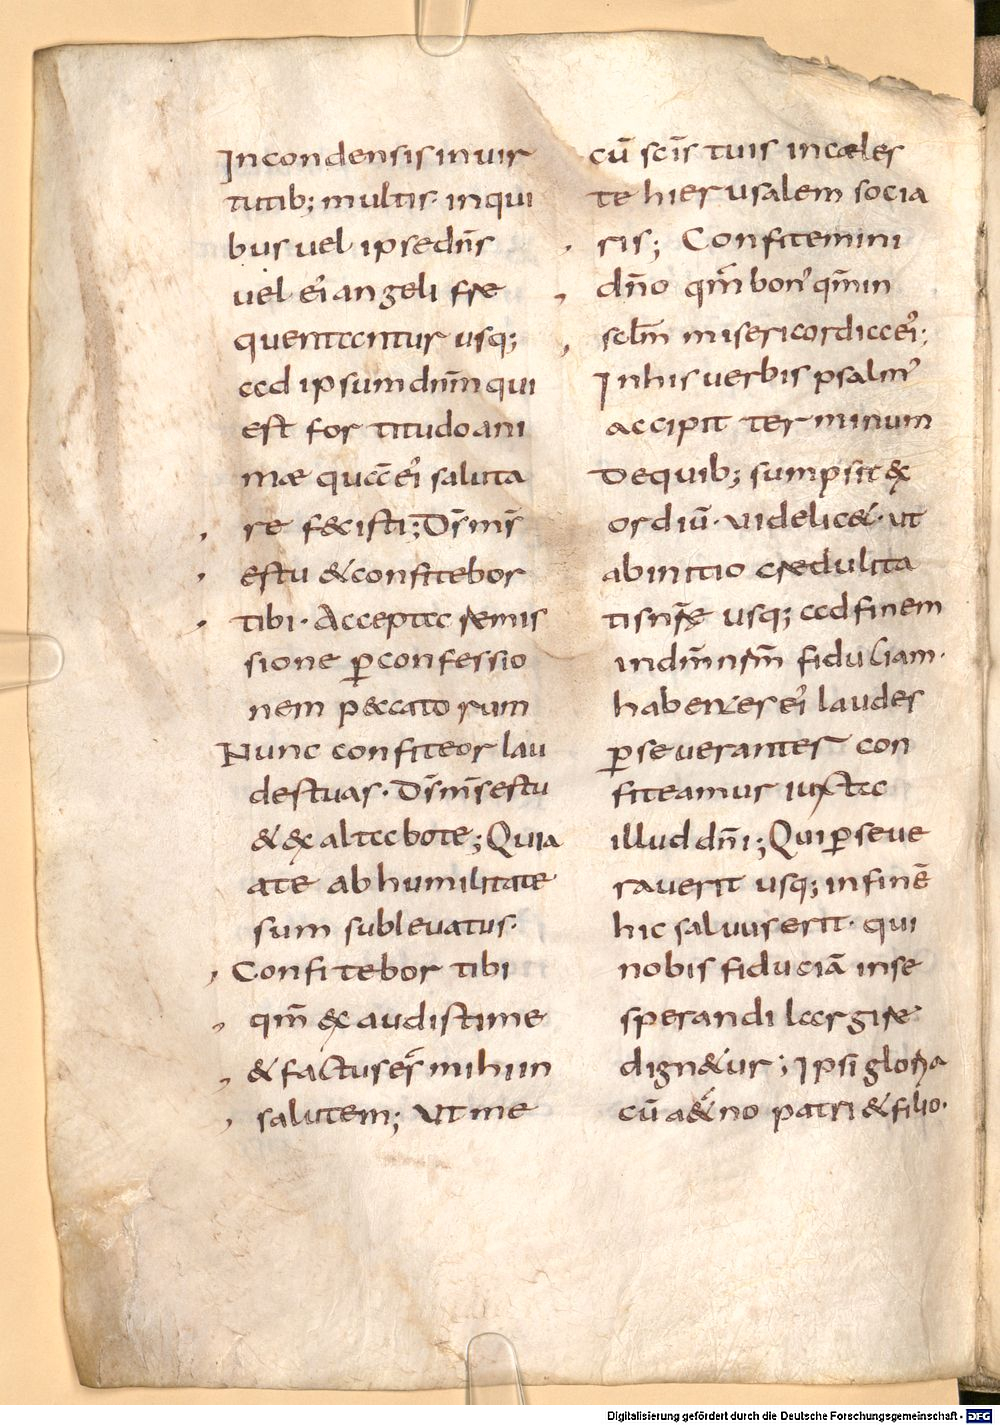 In condensis in uir
tutib; multis· in qui
bus uel ipse dn̄s
uel ei᾽ angeli fre
quentantur usq;
ad ipsum dn̄m qui
est fortitudo ani
mæ quā ei᾽ saluta
re f&isti; Ds̄ ms̄
es tu & confitebor
tibi· Accepta remis
sione p̄ confessio
nem p&catorum
Nunc confiteor lau
des tuas· Ds̄ ms̄ es tu
& &altabo te; Quia
a te ab humilitate
sum subleuatus·
Confitebor tibi
qm̄ &audisti me
& factus es mihi in
salutem; Ut me
cū scīs tuis in cæles
te hierusalem socia
ris; Confitemini
dn̄o qm̄ bon᾽ qm̄ in
sclm̄ misericordia ei᾽;
In his uerbis psalm᾽
accipit terminum
De quib; sumpsit &
ordiū· uidelic&· ut
ab initio credulita
tis nr̄e usq; ad finem
in dm̄ nrm̄ fiduciam·
habentes ei᾽ laudes
p̄seuerantes con
fiteamur iuxta
illud dn̄i; Qui p̄seue
rauerit usq; in finē
hic saluus erit· qui
nobis fiduciā in se
sperandi largire
dign&ur; Ipsi gloria
cū a&no patri & filio·
Digitalisierung gefördert durch die Deutsche Forschungsgemeinschaft - DFG